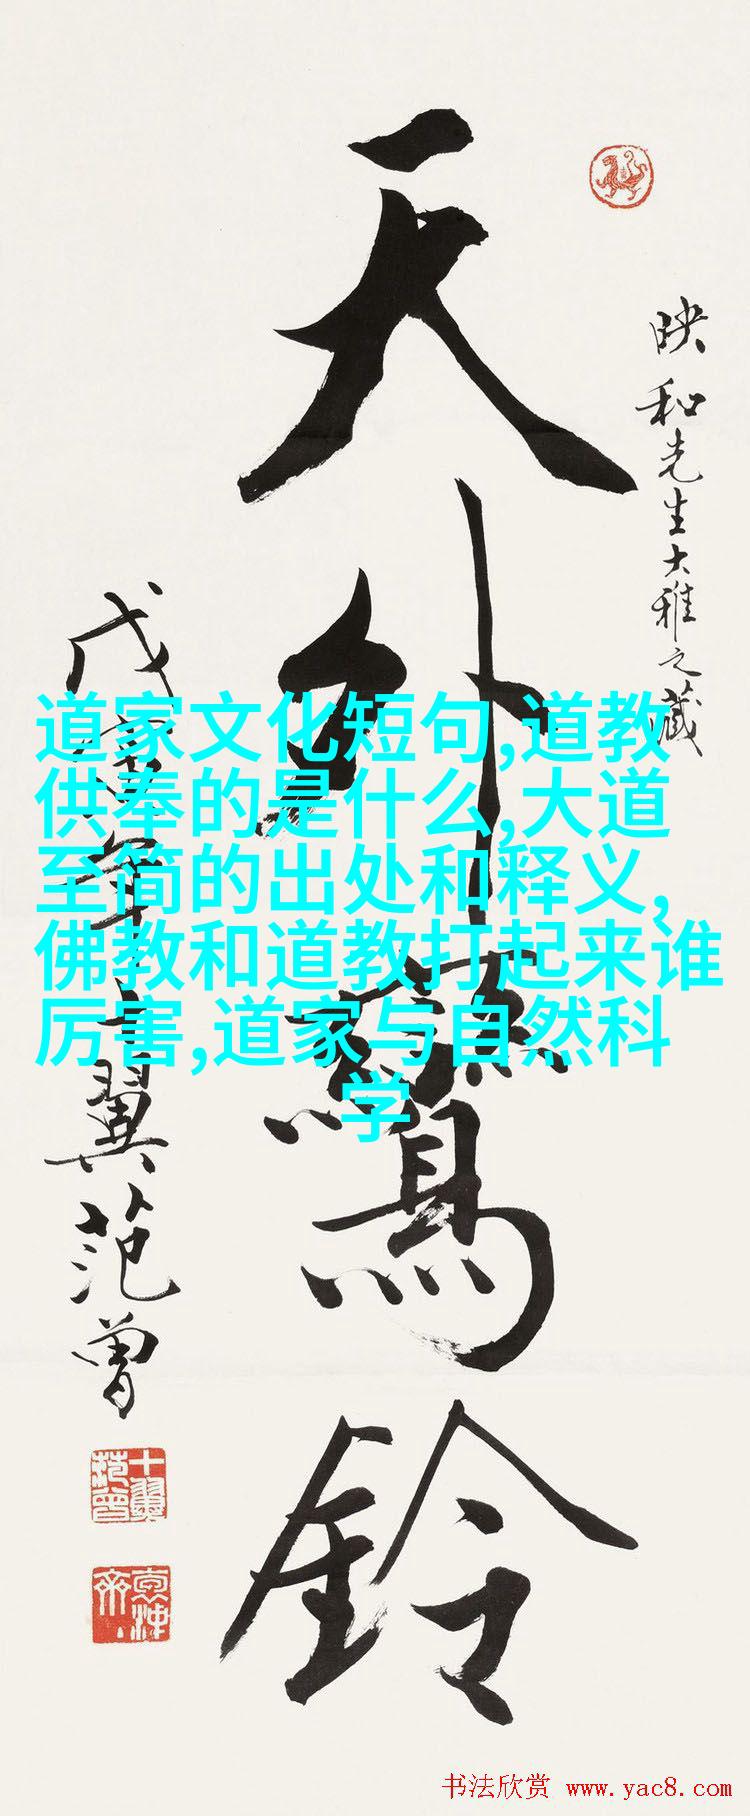 映和先生大雅之藏
天外鸞鈴
戊寅年十翼范曾
十翼范曾
道家文化短句,道教
供奉的是什么,大道
至简的出处和释义,
佛教和道教打起来谁
厉害,道家与自然科
学
书法欣赏 www.yac8.com